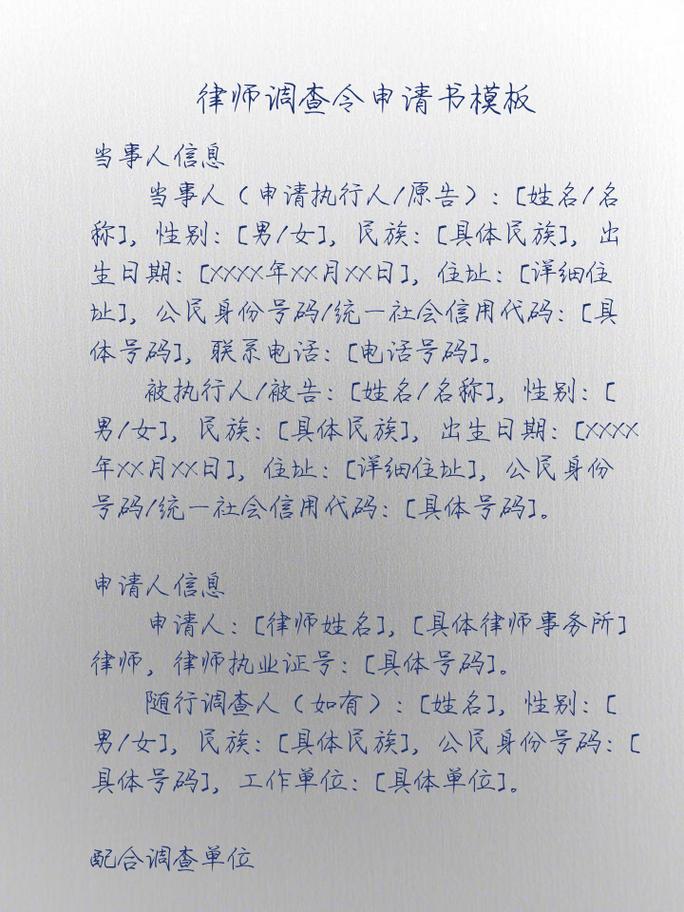 律师调查令申请书模板
当事人信息
当事人（申请执行人/原告）：[姓名/名
称]，性别：[男/女]，民族：[具体民族]，出
生日期：[XXXX年XX月XX日]，住址：[详细住
址]，公民身份号码/统一社会信用代码：[具
体号码]，联系电话：[电话号码]。
被执行人/被告：[姓名/名称]，性别：[
男/女]，民族：[具体民族]，出生日期：[XXXX
年XX月XX日]，住址：[详细住址]，公民身份
号码/统一社会信用代码：[具体号码]。
申请人信息
申请人：[律师姓名]，[具体律师事务所]
律师，律师执业证号：[具体号码]。
随行调查人（如有）：[姓名]，性别：[
男/女]，民族：[具体民族]，公民身份号码：[
具体号码]，工作单位：[具体单位]。
配合调查单位